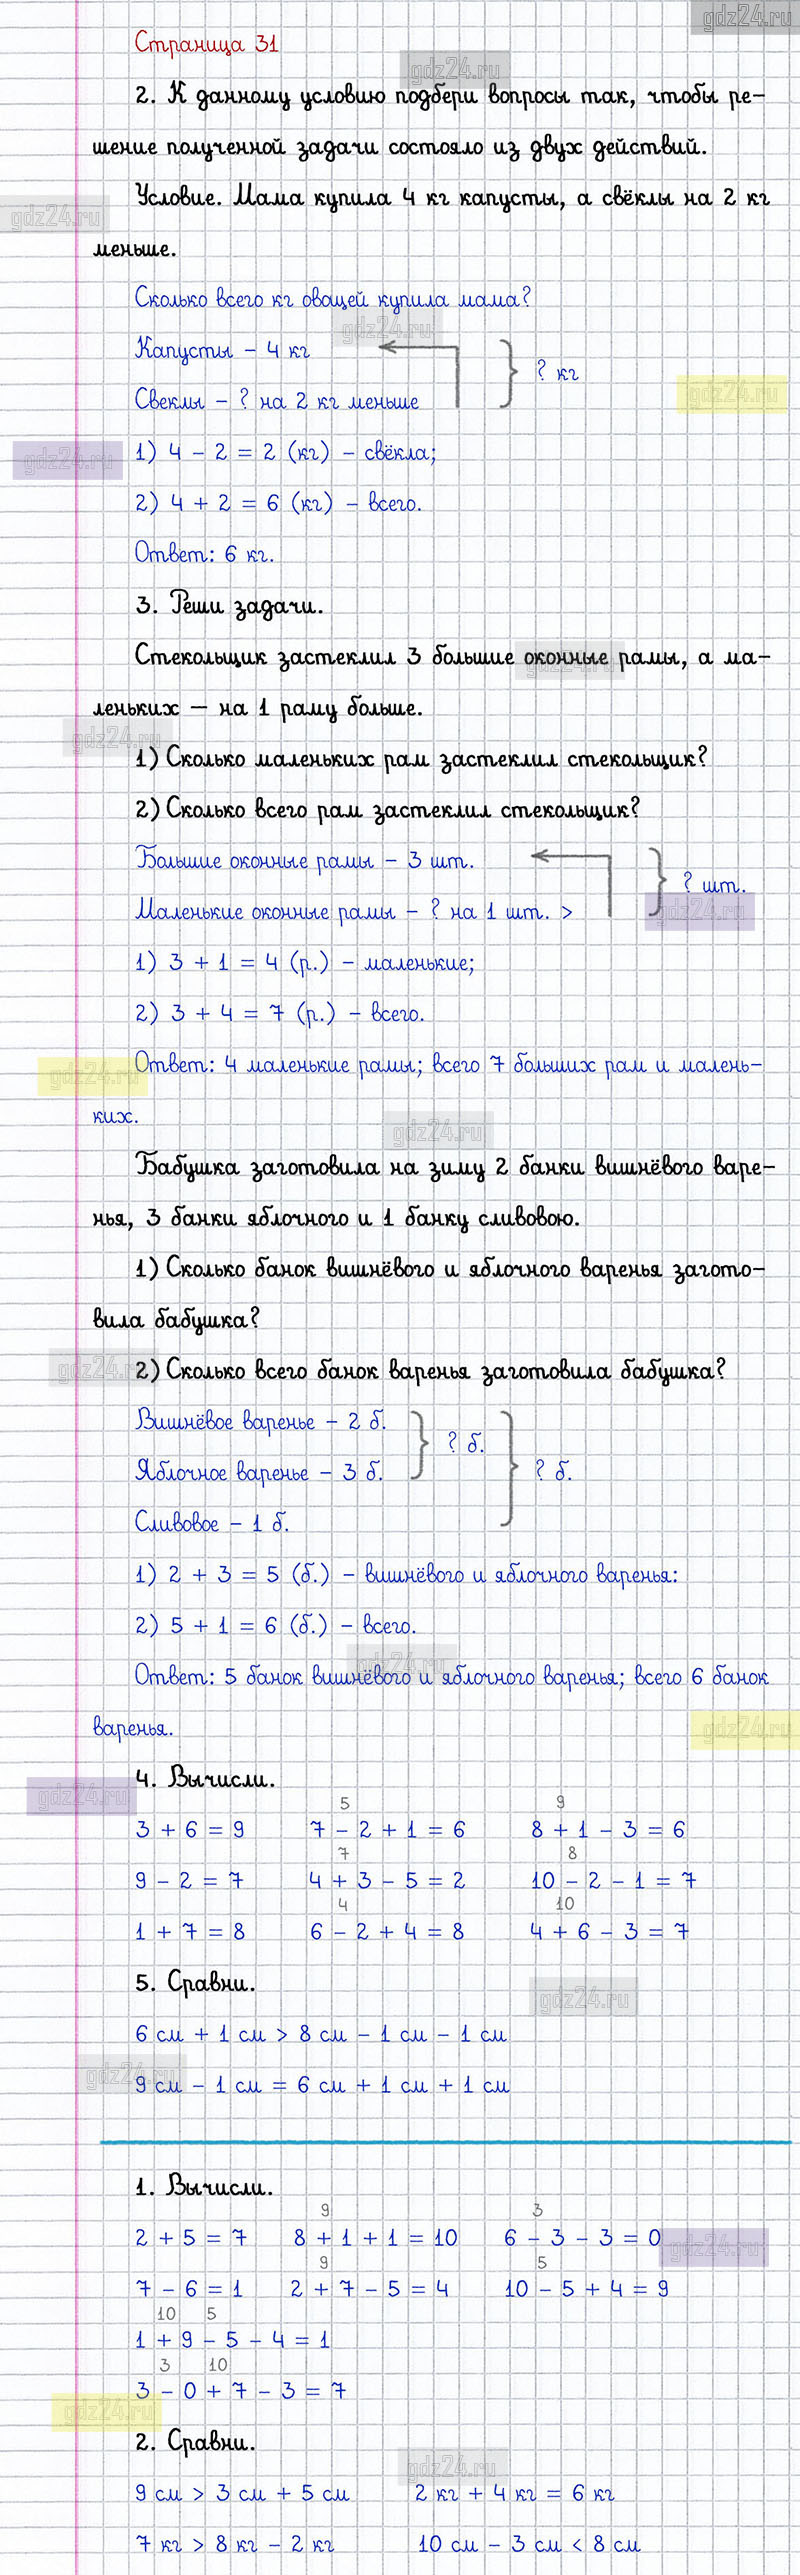 gdz24.ru
Страница 31
gdz24.ru
2. К данному условию подбери вопросы так, чтобы ре-
шение полученной задачи состояло из двух действий.
Условие. Мама купила 4 кг капусты, а свёклы на 2 кг
gdz24.ru
меньше.
Сколько всего кг овощей купила мама?
gdz24.ru
Капусты – 4 кг
? кг
Свеклы – ? на 2 кг меньше
gdz24.ru
1) 4 – 2 = 2 (кг) – свёкла;
gdz24.ru
2) 4 + 2 = 6 (кг) – всего.
Ответ: 6 кг.
3. Реши задачи.
Стекольщик застеклил 3 большие оконные рамы, а ма-
gdz24.ru
леньких — на 1 раму больше.
gdz24.ru
1) Сколько маленьких рам застеклил стекольщик?
2) Сколько всего рам застеклил стекольщик?
Большие оконные рамы – 3 шт.
? шт.
Маленькие оконные рамы – ? на 1 шт. >
gdz24.ru
1) 3 + 1 = 4 (р.) – маленькие;
2) 3 + 4 = 7 (р.) – всего.
Ответ: 4 маленькие рамы; всего 7 больших рам и малень-
gdz24.ru
ких.
gdz24.ru
Бабушка заготовила на зиму 2 банки вишнёвого варе-
нья, 3 банки яблочного и 1 банку сливовою.
1) Сколько банок вишнёвого и яблочного варенья загото-
вила бабушка?
gdz24.ru
2) Сколько всего банок варенья заготовила бабушка?
Вишнёвое варенье – 2 б.
? б.
Яблочное варенье – 3 б.
? б.
Сливовое – 1 б.
1) 2 + 3 = 5 (б.) – вишнёвого и яблочного варенья:
2) 5 + 1 = 6 (б.) – всего.
gdz24.ru
Ответ: 5 банок вишнёвого и яблочного варенья; всего 6 банок
варенья.
gdz24.ru
4. Вычисли.
gdz24.ru
5 9
3 + 6 = 9 7 – 2 + 1 = 6 8 + 1 – 3 = 6
7 8
9 – 2 = 7 4 + 3 – 5 = 2 10 – 2 – 1 = 7
4 10
1 + 7 = 8 6 – 2 + 4 = 8 4 + 6 – 3 = 7
5. Сравни.
gdz24.ru
6 см + 1 см > 8 см – 1 см – 1 см
gdz24.ru
9 см – 1 см = 6 см + 1 см + 1 см
1. Вычисли.
9 3
2 + 5 = 7 8 + 1 + 1 = 10 6 – 3 – 3 = 0
gdz24.ru
9 5
7 – 6 = 1 2 + 7 – 5 = 4 10 – 5 + 4 = 9
10 5
1 + 9 – 5 – 4 = 1
3 10
3 – 0 + 7 – 3 = 7
gdz24.ru
2. Сравни.
gdz24.ru
9 см > 3 см + 5 см 2 кг + 4 кг = 6 кг
7 кг > 8 кг – 2 кг 10 см – 3 см < 8 см